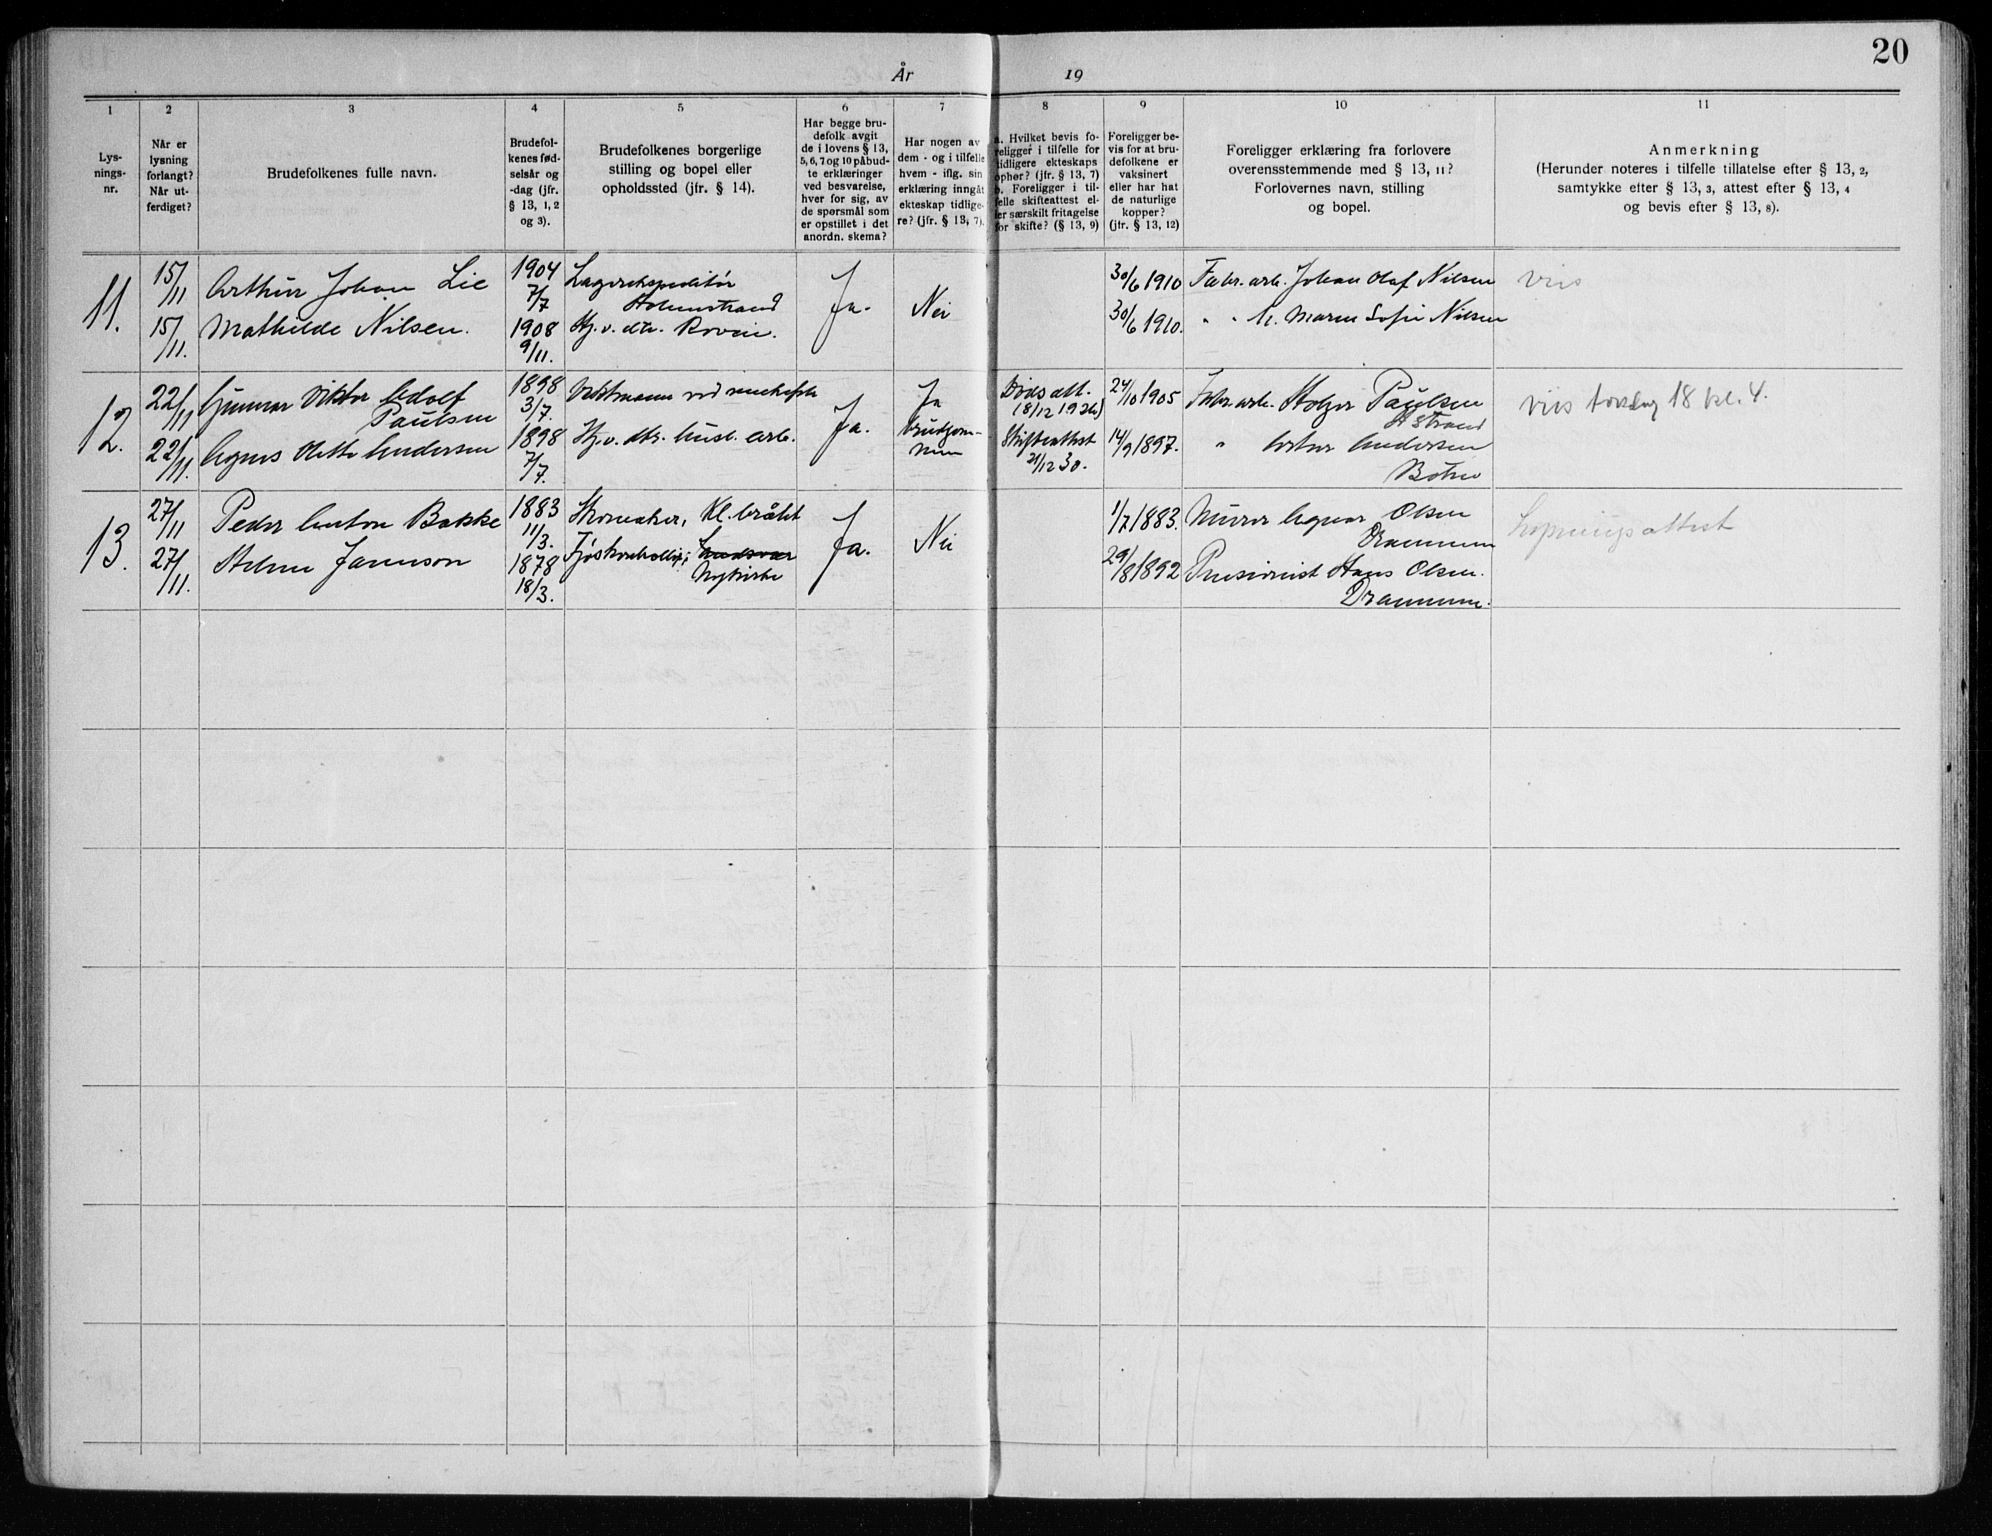 20
År 19
1 2 3 4 5 6 7 8 9 10 11
Lys-
nings-
nr.
Når er
lysning
forlangt?
Når ut-
ferdiget?
Brudefolkenes fulle navn.
Brudefol-
kenes fød-
selsår og
-dag (jfr.
§ 13, 1, 2
og 3).
Brudefolkenes borgerlige
stilling og bopel eller
opholdssted (jfr. § 14).
Har begge bru-
defolk avgit
de i lovens § 13,
5, 6, 7 og 10 påbud-
te erklæringer
ved besvarelse,
hver for sig, av
de spørsmål som
er opstillet i det
anordn. skema?
Har nogen av
dem - og i tilfelle
hvem - iflg. sin
erklæring inngåt
ekteskap tidlige-
re? (jfr. § 13, 7).
a. Hvilket bevis fo-
religger i tilfelle for
tidligere ekteskaps
ophør? (jfr. § 13, 7)
b. Foreligger i til-
felle skifteattest el-
ler særskilt fritagelse
for skifte? (§ 13, 9)
Foreligger be-
vis for at bru-
defolkene er
vaksinert
eller har hat
de naturlige
kopper?
(jfr. § 13, 12)
Foreligger erklæring fra forlovere
overensstemmende med § 13, 11?
Forlovernes navn, stilling
og bopel.
Anmerkning
(Herunder noteres i tilfelle tillatelse efter § 13, 2,
samtykke efter § 13, 3, attest efter § 13, 4
og bevis efter § 13, 8).
11.
15/11
15/11.
Arthur Johan Lie
Mathilde Nilsen.
1904
7/7
1908
9/11.
Lagerekspeditør
Holmestrand
Hj. v. dtr. Roven.
Ja.
Nei
30/6 1910
30/6 1910.
Fabr. arb. Johan Olaf Nilsen
" " M. Maren Sofie Nilsen
viis
12.
22/11
22/11.
Gunnar Viktor Adolf
Paulsen
Agnes Otette Andersen
1898
3/7.
1898
7/7.
Hj. v. dtr. husl. arb.
Ja.
Ja
brudgom-
men
Døds att.
18/12 1926)
Skifteattest
21/12 30.
24/10 1905
14/9 1897.
Fabr. arb. Holger Paulsen
H strand
" Andersen
Botne
viis torsdag 18 kl. 4.
13.
27/11
27/11.
Peder Anton Bakke
Helene Jamnson
1883
11/3.
1878
18/3.
Skomaker, Kl. bråtet
Nykirke
Ja.
Nei
1/7 1883.
29/8 1892
Murer Agnar Olsen
Drammen
Pensionist Hans Olsen.
Drammen.
Lysningsattest